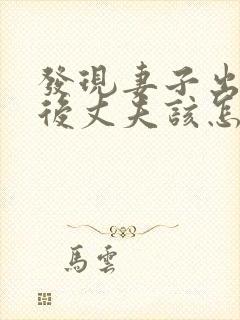 發現妻子出
後丈夫該怎
馬雲